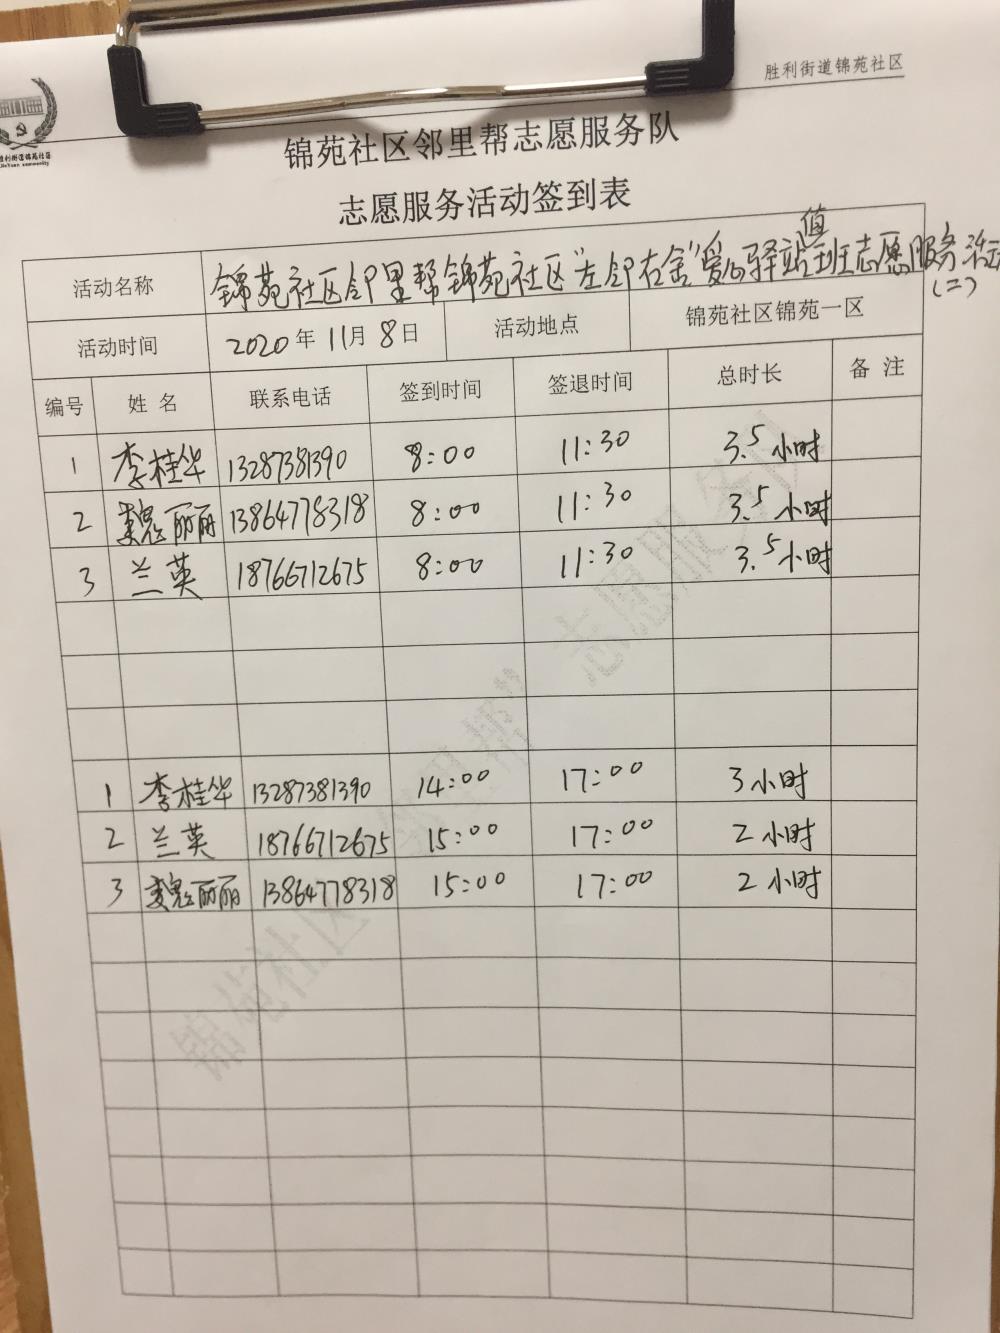 胜利街道锦苑社区
胜利街道锦苑社区
JinYuan community
锦苑社区邻里帮志愿服务队
志愿服务活动签到表
活动名称 锦苑社区邻里帮锦苑社区"左邻右舍"爱心驿站值班志愿服务活动
(二)
活动时间 2020年11月8日 活动地点 锦苑社区锦苑一区
编号 姓名 联系电话 签到时间 签退时间 总时长 备注
1 李桂华 13287381390 8:00 11:30 3.5小时
2 魏丽丽 13864778318 8:00 11:30 3.5小时
3 兰英 18766712675 8:00 11:30 3.5小时
1 李桂华 13287381390 14:00 17:00 3小时
2 兰英 18766712675 15:00 17:00 2小时
3 魏丽丽 13864778318 15:00 17:00 2小时
锦苑社区"邻里帮"志愿服务队